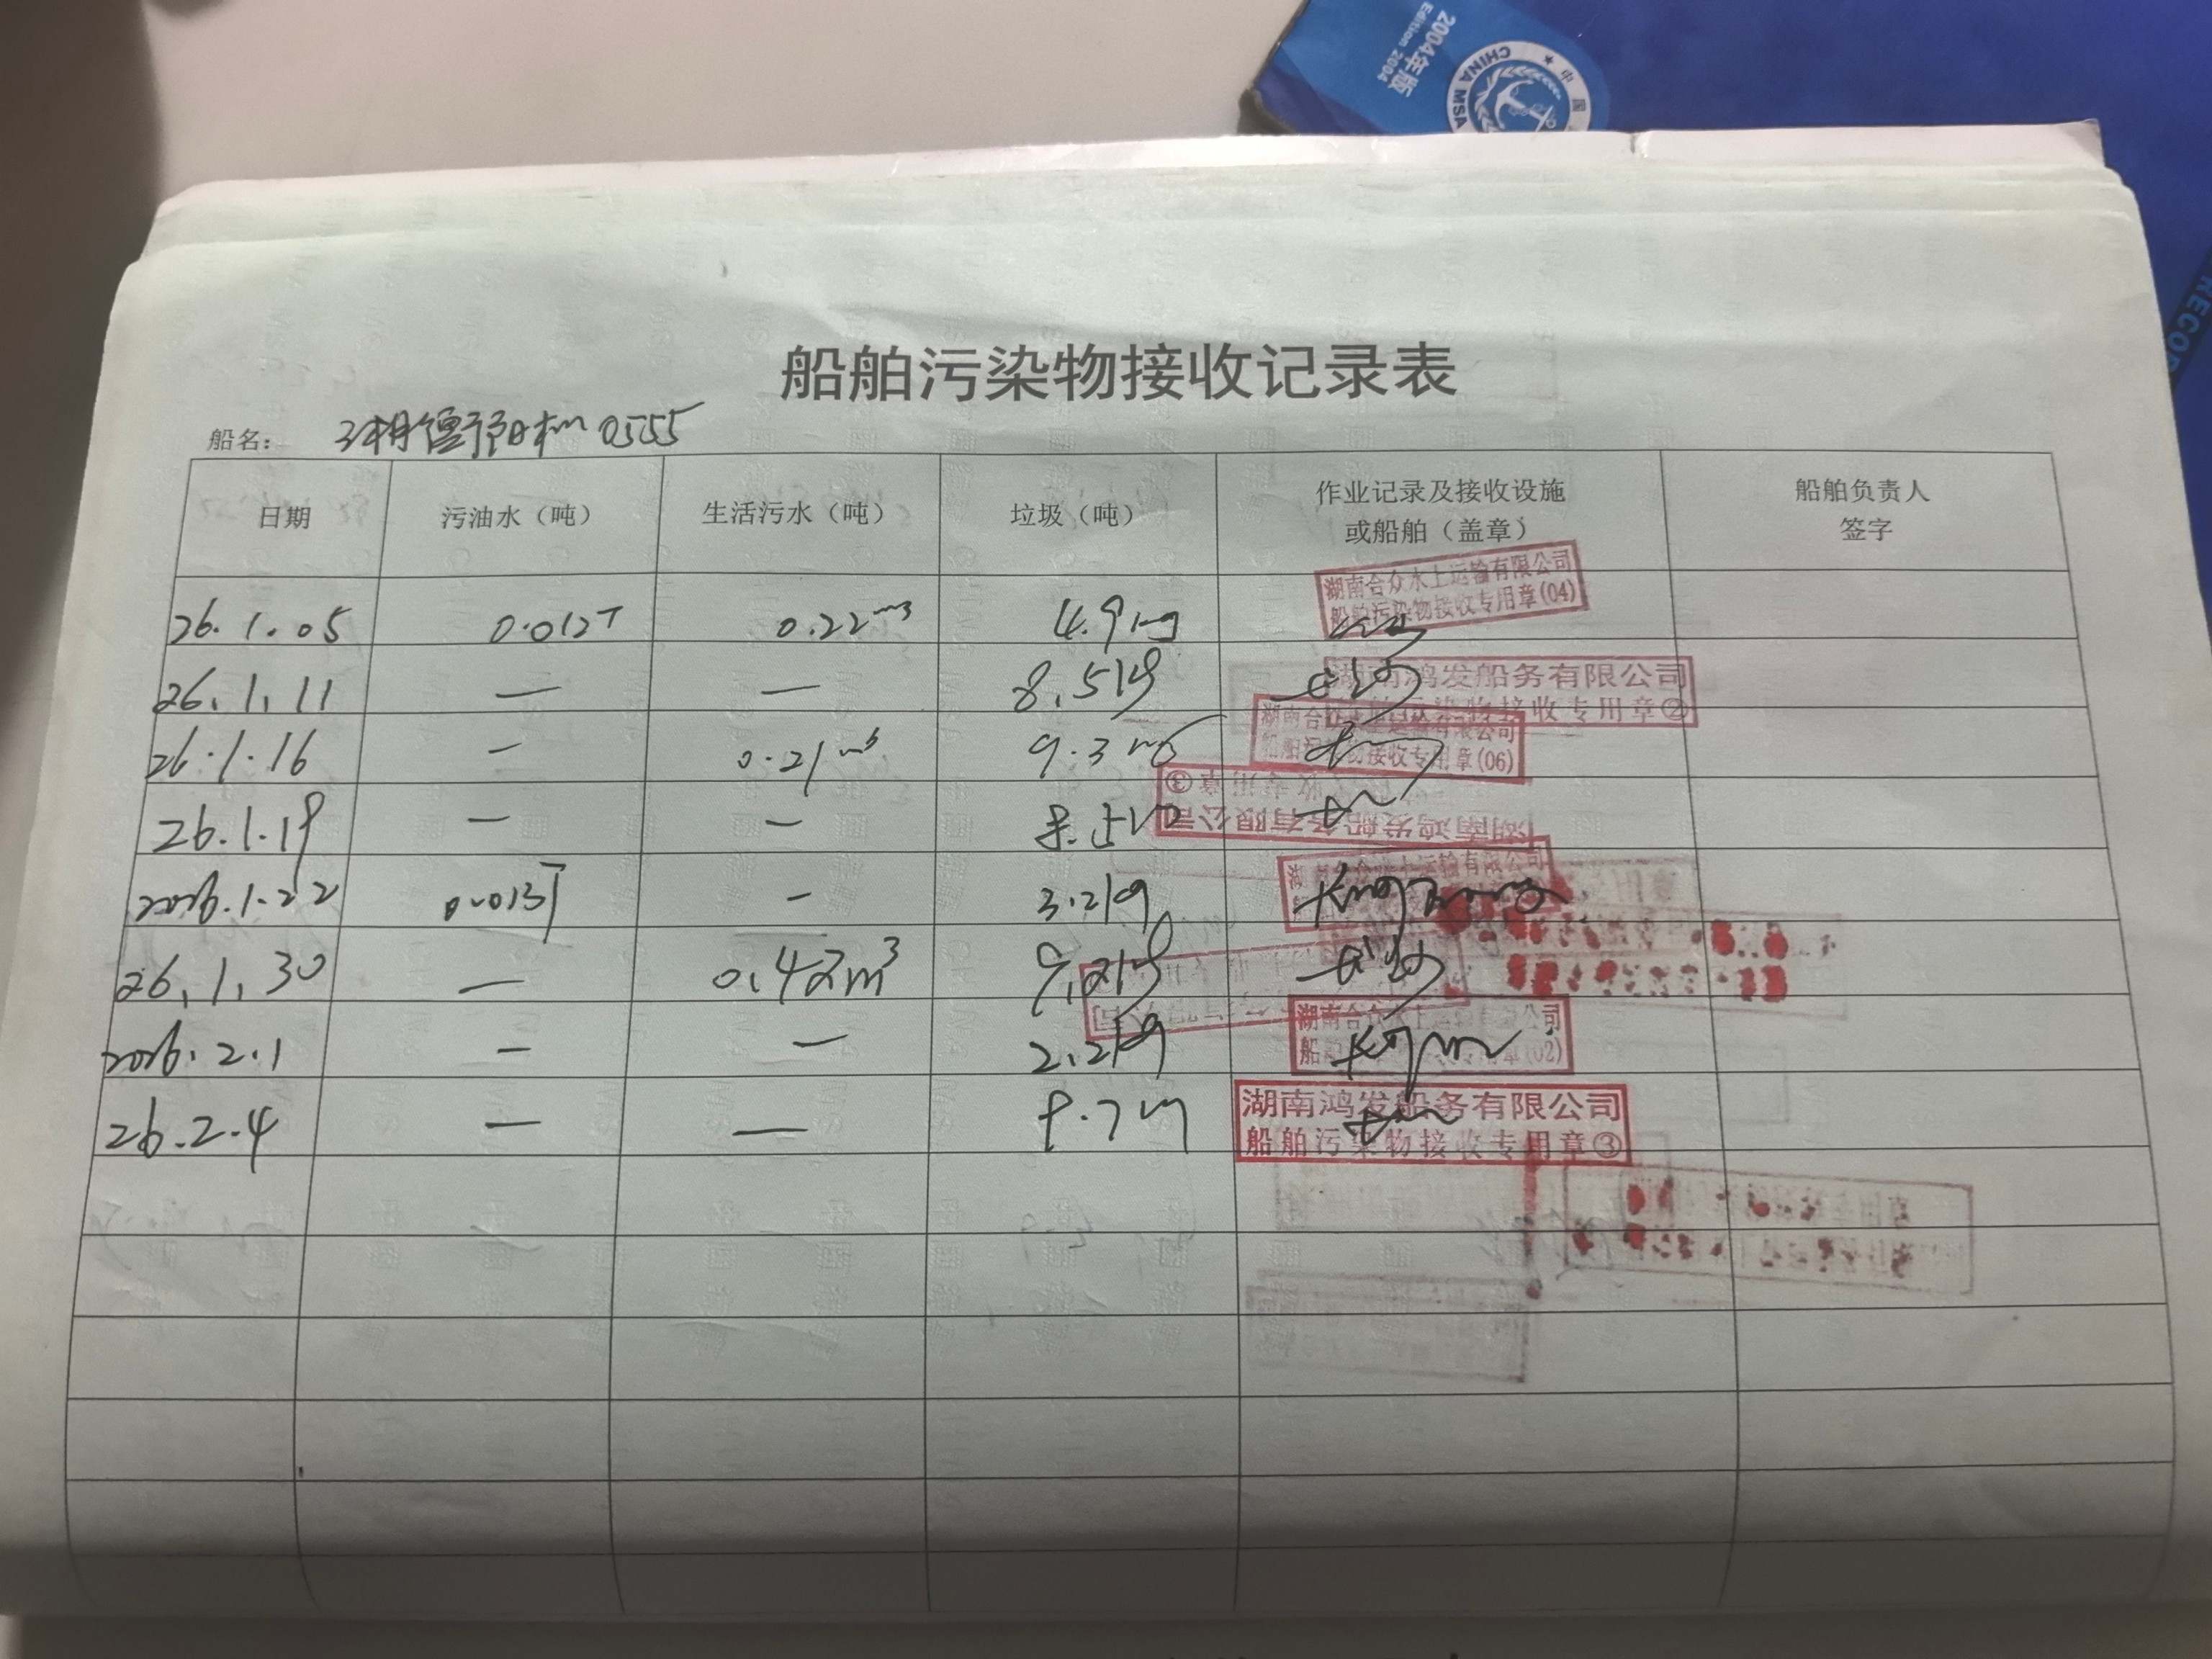 2004年版
Edition 2004
CHINA MSA
中国
RECOR
船舶污染物接收记录表
船名： 0555
日期 污油水（吨） 生活污水（吨） 垃圾（吨） 作业记录及接收设施或船舶（盖章） 船舶负责人签字
26.1.05 0.012T 0.22m3 4.9kg 湖南合众水上运输有限公司 船舶污染物接收专用章(04)
26.1.11 — — 8.5kg 湖南鸿发船务有限公司 船舶污染物接收专用章②
26.1.16 — 0.21m3 9.3kg 湖南合众水上运输有限公司 船舶污染物接收专用章(06)
26.1.19 — — 8.5kg 湖南鸿发船务有限公司 专用章③
2026.1.22 0.013T — 3.2kg 水上运输有限公司
26.1.30 — 0.42m3 9.2kg
2026.2.1 — — 2.2kg 湖南合众水上运输有限公司 专用章(02)
26.2.4 — — 9.7kg 湖南鸿发船务有限公司 船舶污染物接收专用章③